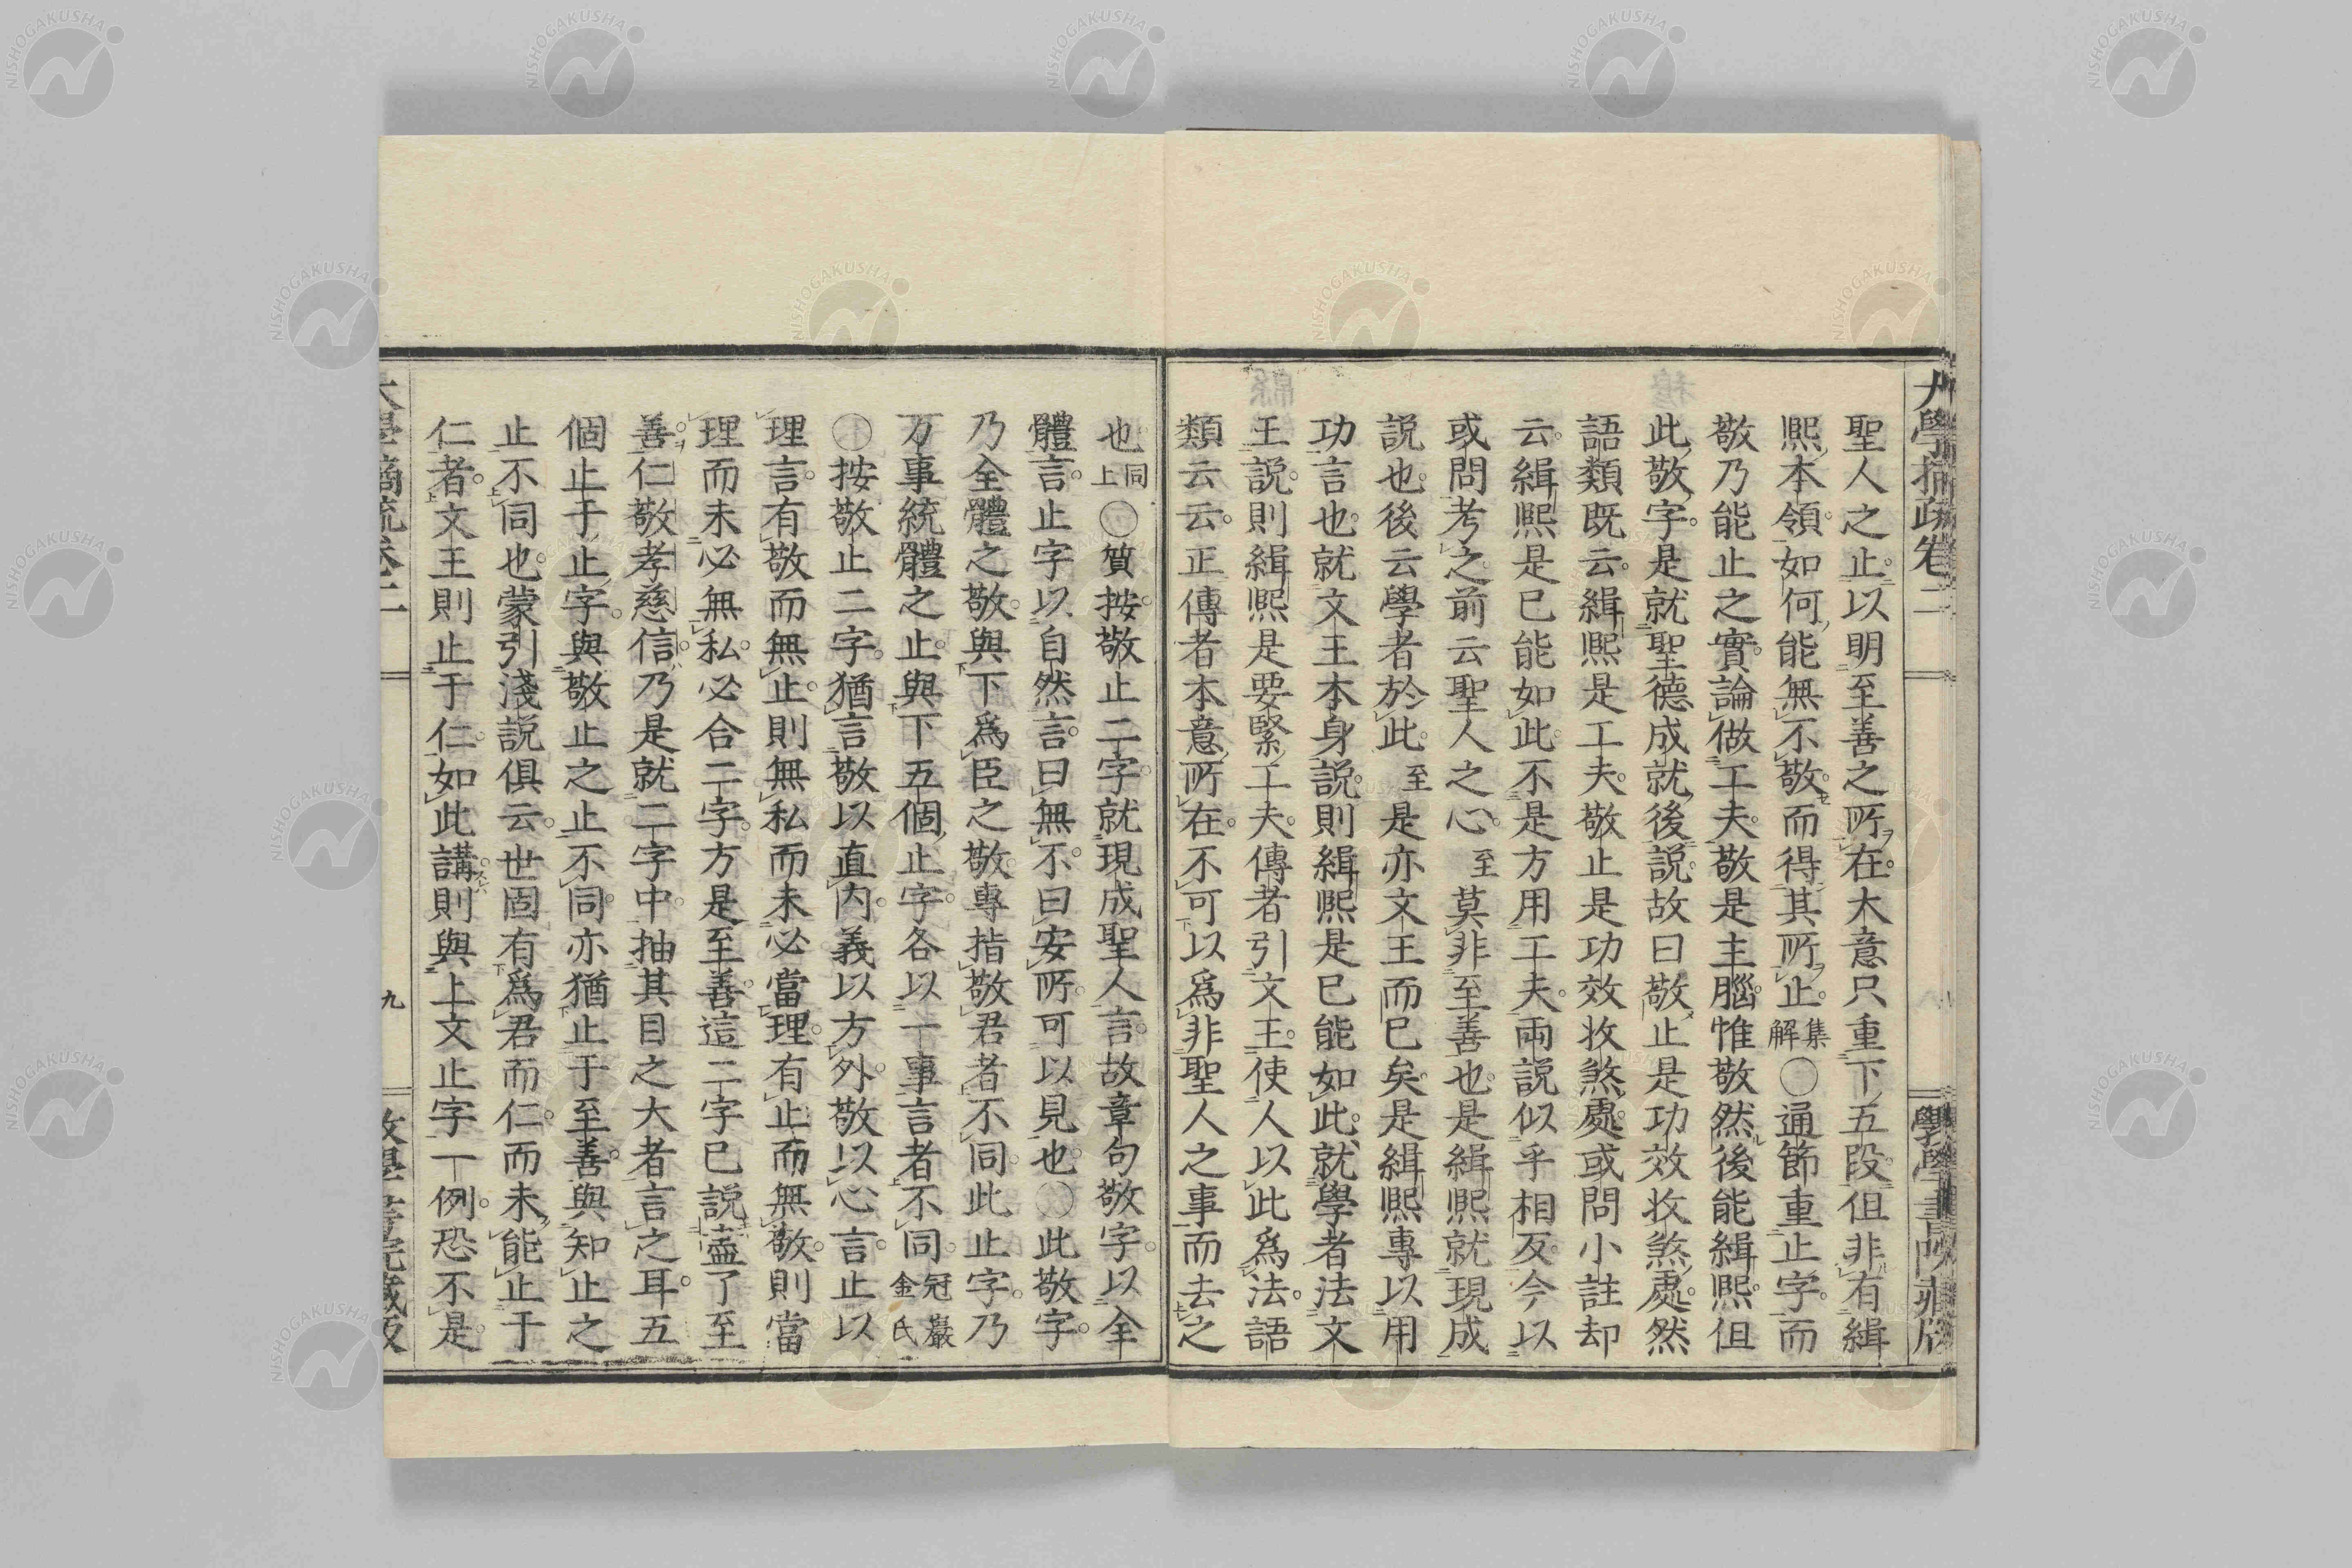 聖人之止以明至善之所在大意只重下五段但非有緝
熙本領如何能無不敬而得其所止集解○通節重止字而
敬乃能止之實論做工夫敬是主腦惟敬然後能緝熙但
此敬字是就聖德成就後說故曰敬止是功效收煞處然
語類既云緝熙是工夫敬止是功效收煞處或問小註却
云緝熙是已能如此不是方用工夫兩說似乎相反今以
或問考之前云聖人之心至莫非至善也是緝熙就現成
說也後云學者於此至是亦文王而已矣是緝熙專以用
功言也就文王本身說則緝熙是已能如此就學者法文
王說則緝熙是要緊工夫傳者引文王使人以此為法語
類云云正傳者本意所在不可以為非聖人之事而去之
也同上○質按敬止二字就現成聖人言故章句敬字以全
體言止字以自然言曰無不曰安所可以見也○此敬字
乃全體之敬與下為臣之敬專指敬君者不同此止字乃
万事統體之止與下五個止字各以一事言者不同冠巖金氏
○按敬止二字猶言敬以直內義以方外敬以心言止以
理言有敬而無止則無私而未必當理有止而無敬則當
理而未必無私必合二字方是至善這二字已說盡了至
善仁敬孝慈信乃是就二字中抽其目之大者言之耳五
個止于止字與敬止之止不同亦猶止于至善與知止之
止不同也蒙引淺說俱云世固有為君而仁而未能止于
仁者文王則止于仁如此講則與上文止字一例恐不是
大學摘疏卷二
九